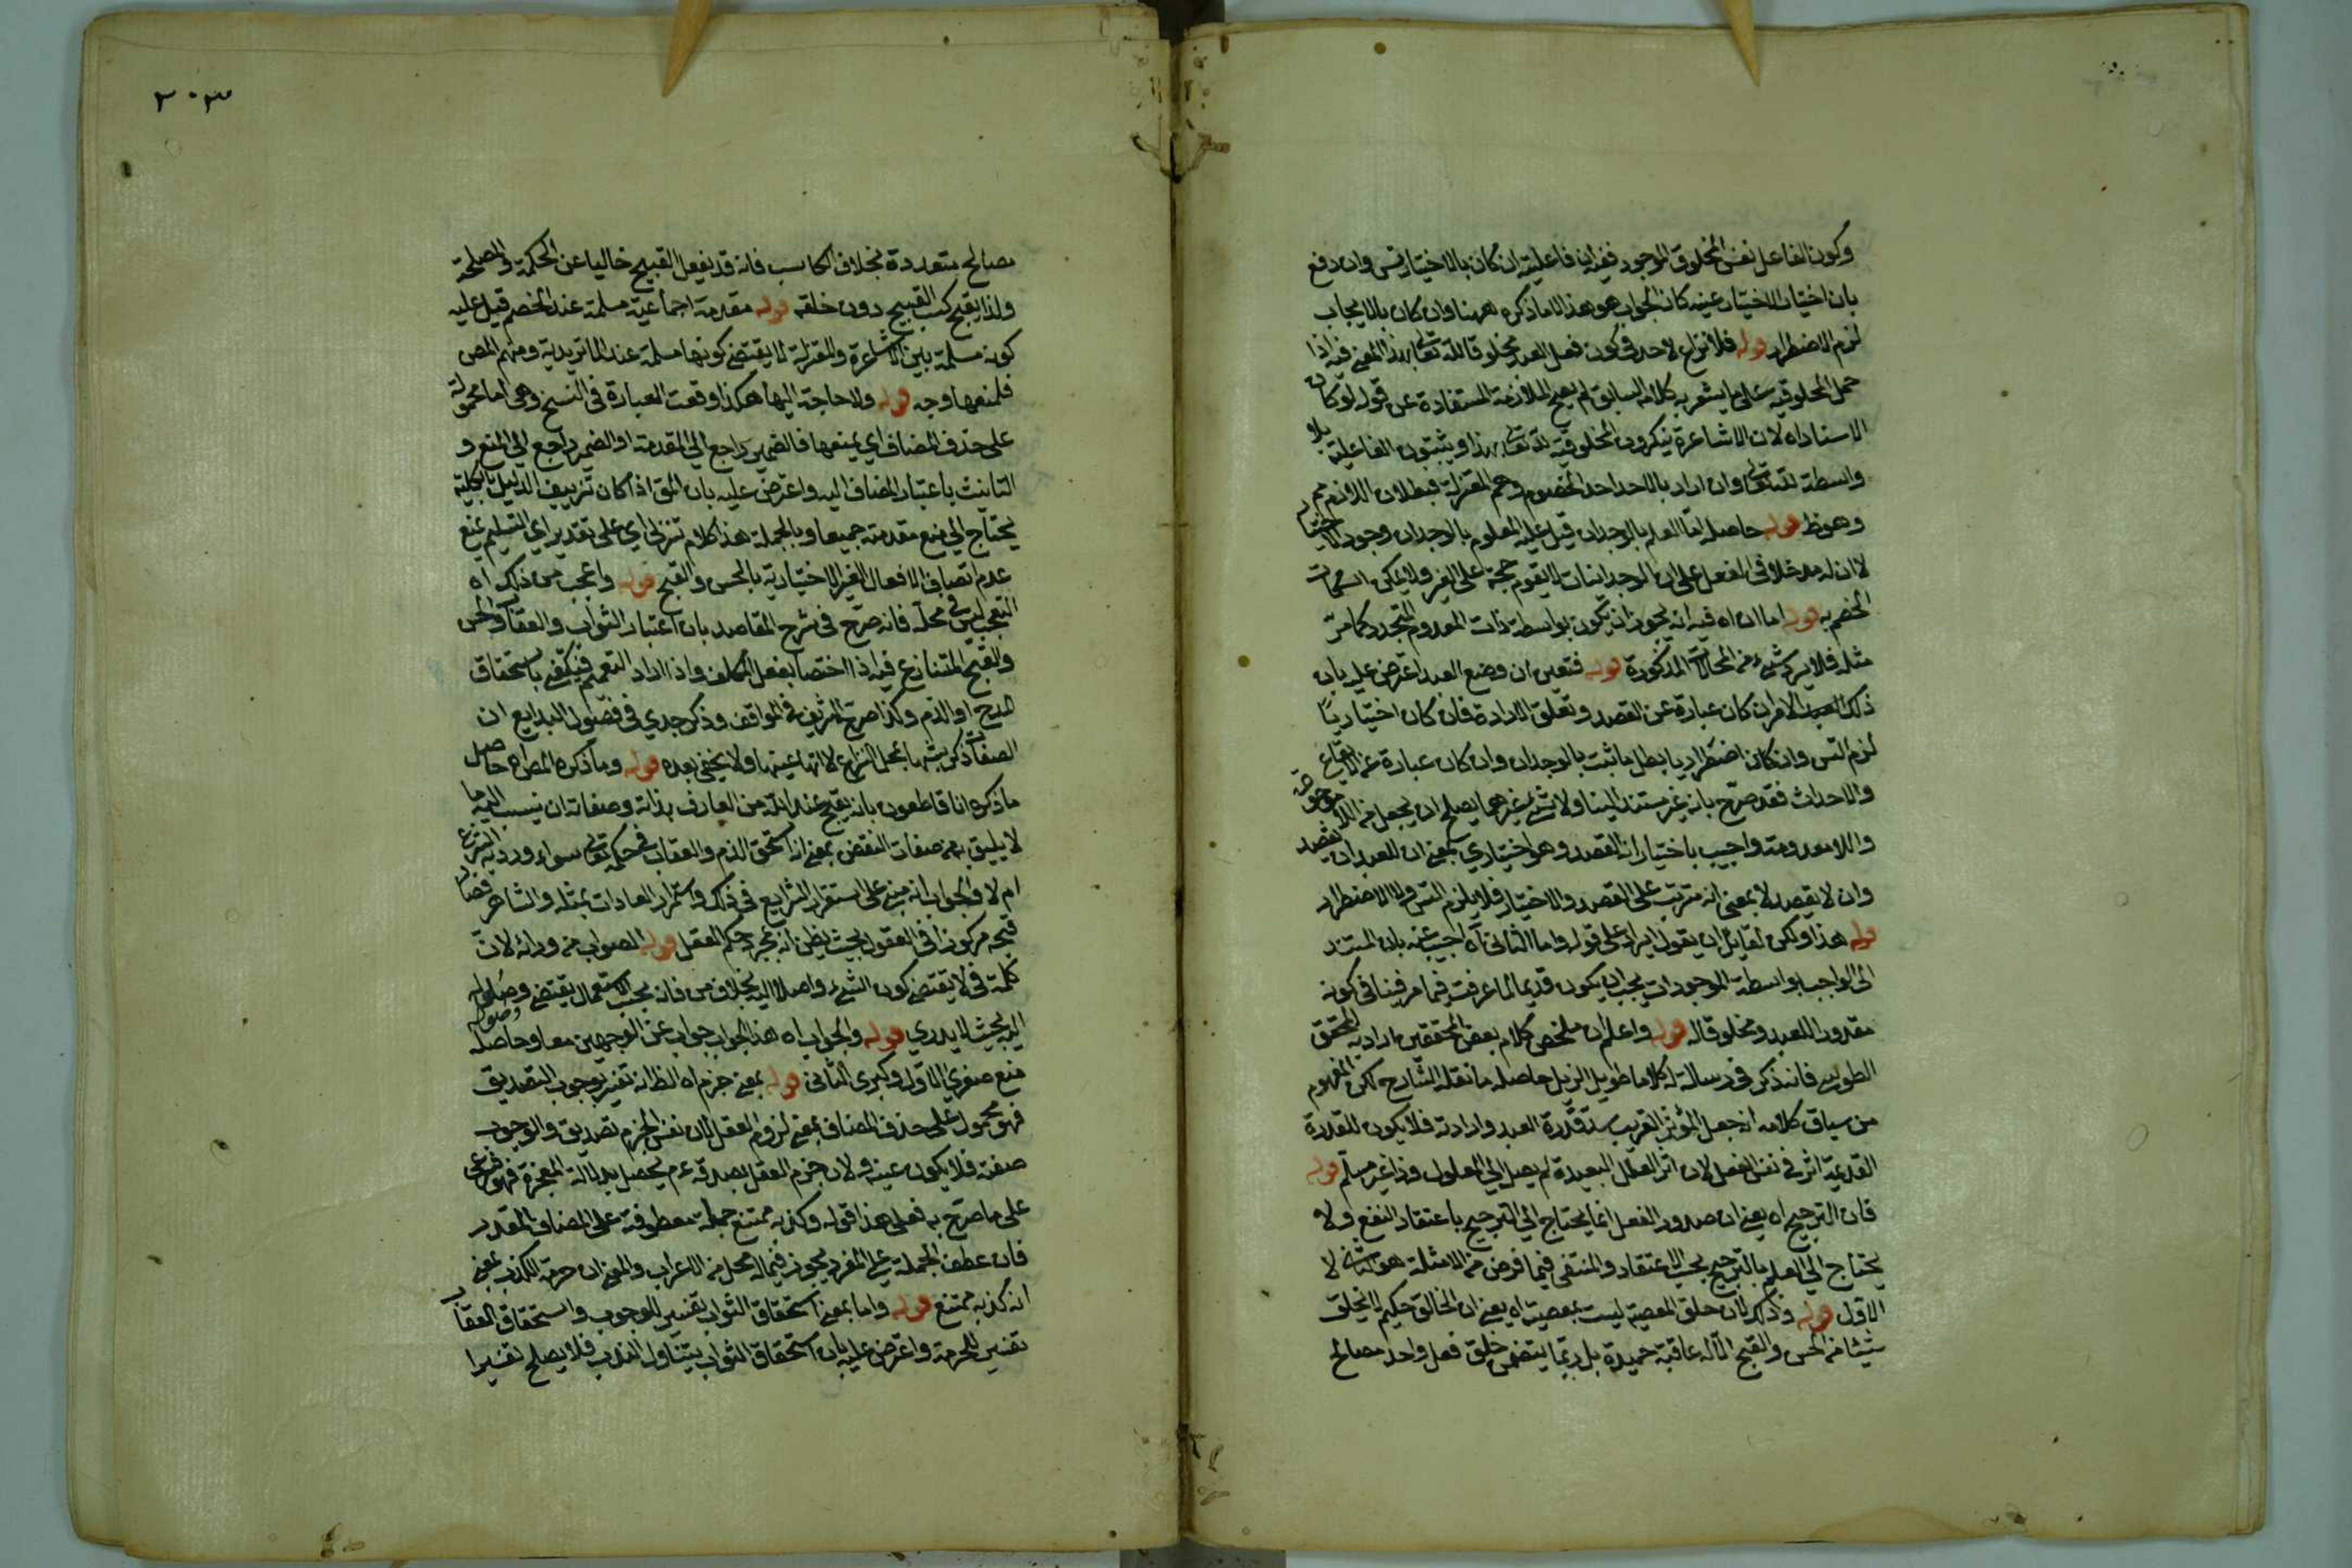 وكون الفاعل نفس المخلوق الموجود ففيه ان فاعليته ان كان بالاختيار تس وان دفع
بان اختيار الاختيار عينه كان الجواب هو هذا لا ما ذكره ههنا وان كان بالايجاب
لزم الاضطرار قوله فلا نزاع لاحد في كون فعل العبد مخلوقا لله تعالى بهذا المعنى فيه اذا
حمل المخلوقية على ما يشعر به كلامه السابق لم يصح الملازمة المستفادة عن قوله لو كان
الاسناد اه لان الاشاعرة ينكرون المخلوقية لله تعالى بهذا ويثبتون الفاعلية بلا
واسطة لله تعالى وان اراد بالاحد احد الخصوم وهم المعتزلة فبطلان اللازم مم
وهو ظ قوله حاصله اما العلم بالوجدان قيل عليه المعلوم بالوجدان وجود الاختيار
لا ان له مدخلا في الفعل على ان الوجدانيات لا يقوم حجة على الغير ولا يمكن اسكات
الخصم به قوله اما ان اه فيه انه يجوز ان يكون بواسطة ذات المعدوم المتجدد كما مر
مثله فلا يرد شيء من المحالات المذكورة قوله فتعين ان وضع العبد اعترض عليه بان
ذلك الامر ان كان عبارة عن القصد وتعلق الارادة فان كان اختياريا
لزم التس وان كان اضطراريا بطل ما ثبت بالوجدان وان كان عبارة عن الايقاع
والاحداث فقد صرح بانه غير مستند الينا ولا شيء غيرهما يصلح ان يجعل من اللا موجودة
واللامعدومة واجيب باختيار انه القصد وهو اختياري بمعنى ان للعبد ان يقصد
وان لا يقصد لا بمعنى انه مترتب على القصد والاختيار فلا يلزم التس ولا الاضطرار
قوله هذا ولكن لقائل ان يقول ايراد على قوله واما الثاني اه اجيب عنه بان المستند
الى الواجب بواسطة الموجودات يجب ان يكون قديما لما عرفت فيما مر فينافي كونه
مقدورا للعبد ومخلوقا له قوله واعلم ان ملخص كلام بعض المحققين اراد به المحقق
الطوسي فانه ذكر في رسالة له كلاما طويل الذيل حاصله ما نقله الشارح لكن المفهوم
من سياق كلامه انه جعل المؤثر القريب قدرة العبد وارادته فلا يكون للقدرة
القديمة اثر في نفس الفعل لان اثر العلل البعيدة لم يصل الى المعلول وذا غير مسلم قوله
فان الترجيح اه يعني ان صدور الفعل انما يحتاج الى الترجيح باعتقاد النفع ولا
يحتاج الى العلم بالترجيح بحسب الاعتقاد والمنتفي فيما فرض من الامثلة هو الثاني لا
الاول قوله وذلك لان خلق المعصية ليست بمعصية اه يعني ان الخالق حكيم لا يخلق
شيئا من الحسن والقبح الا له عاقبة حميدة بل ربما يتضمن خلق فعل واحد مصالح
٢٠٣
مصالح متعددة بخلاف الكاسب فانه قد يفعل القبيح خاليا عن الحكمة والمصلحة
ولذا يقبح كسب القبيح دون خلقه قوله مقدمة اجماعية مسلمة عند الخصم قيل عليه
كونه مسلمة بين الاشاعرة والمعتزلة لا يقتضي كونها مسلمة عند الماتريدية ومنهم المص
فلمنعها وجه قوله ولا حاجة اليها هكذا وقعت العبارة في النسخ وهي اما محمولة
على حذف المضاف اي بمنعها فالضمير راجع الى المقدمة او الضمير راجع الى المنع و
التانيث باعتبار المضاف اليه واعترض عليه بان المق اذا كان تزييف الدليل بالكلية
يحتاج الى منع مقدمته جميعا وبالجملة هذا كلام تنزلي اي على تقدير اي التسليم يمنع
عدم اتصاف الافعال الغير الاختيارية بالحسن والقبح قوله واعجب من ذلك اه
التعجب ليس في محله فانه صرح في شرح المقاصد بان اعتبار الثواب والعقاب في الحسن
والقبح المتنازع فيه اذا اختصا بفعل المكلف واذا اراد التعميم فيكتفي باستحقاق
المدح او الذم وكذا صرح الشريف في المواقف وذكر جدي في فصول البدايع ان
الصفات ذكر بشبهها بمحل النزاع لا انها عينها ولا يخفى بعده قوله وما ذكره المص اه حاصل
ما ذكره انا قاطعون بانه يقبح عند الله من العارف بذاته وصفاته ان ينسب اليه ما
لا يليق به من صفات النقص بمعنى انه استحق الذم والعقاب في حكمه تعالى سواء ورد به الشرع
ام لا والجواب انه مبني على استقرار الشرايع في ذلك واستمرار العادات بمثله والشاعر فصار
قبحه مركوزا في العقول بحيث يظن انه بمجرد حكم العقل قوله الصواب من ورائه لان
كلمة في لا يقتضي كون الشيء واصلا اليه بخلاف من فانه بحسب الاستعمال يقتضي وصوله
اليه بحيث لا يدري قوله والجواب اه هذا الجواب جواب عن الوجهين معا وحاصله
منع صغرى الاول وكبرى الثاني قوله بمعنى جزم اه الظ انه تفسير لوجوب التصديق
فهو محمول على حذف المضاف بمعنى لزوم العقل لان نفس الجزم تصديق والوجوب
صفته فلا يكون عينه ولان جزم العقل بصدقه ع م يحصل بدلالة المعجزة فهو شرعي
على ما صرح به فعلى هذا قوله وكذبه ممتنع جملة معطوفة على المضاف المقدر
فان عطف الجملة على المفرد يجوز فيما له محل من الاعراب والمعنى ان حرمة الكذب بمعنى
انه كذبه ممتنع قوله واما بمعنى استحقاق الثواب تفسير للوجوب واستحقاق العقاب
تفسير للحرمة واعترض عليه بان استحقاق الثواب يتناول الندب فلا يصلح تفسيرا